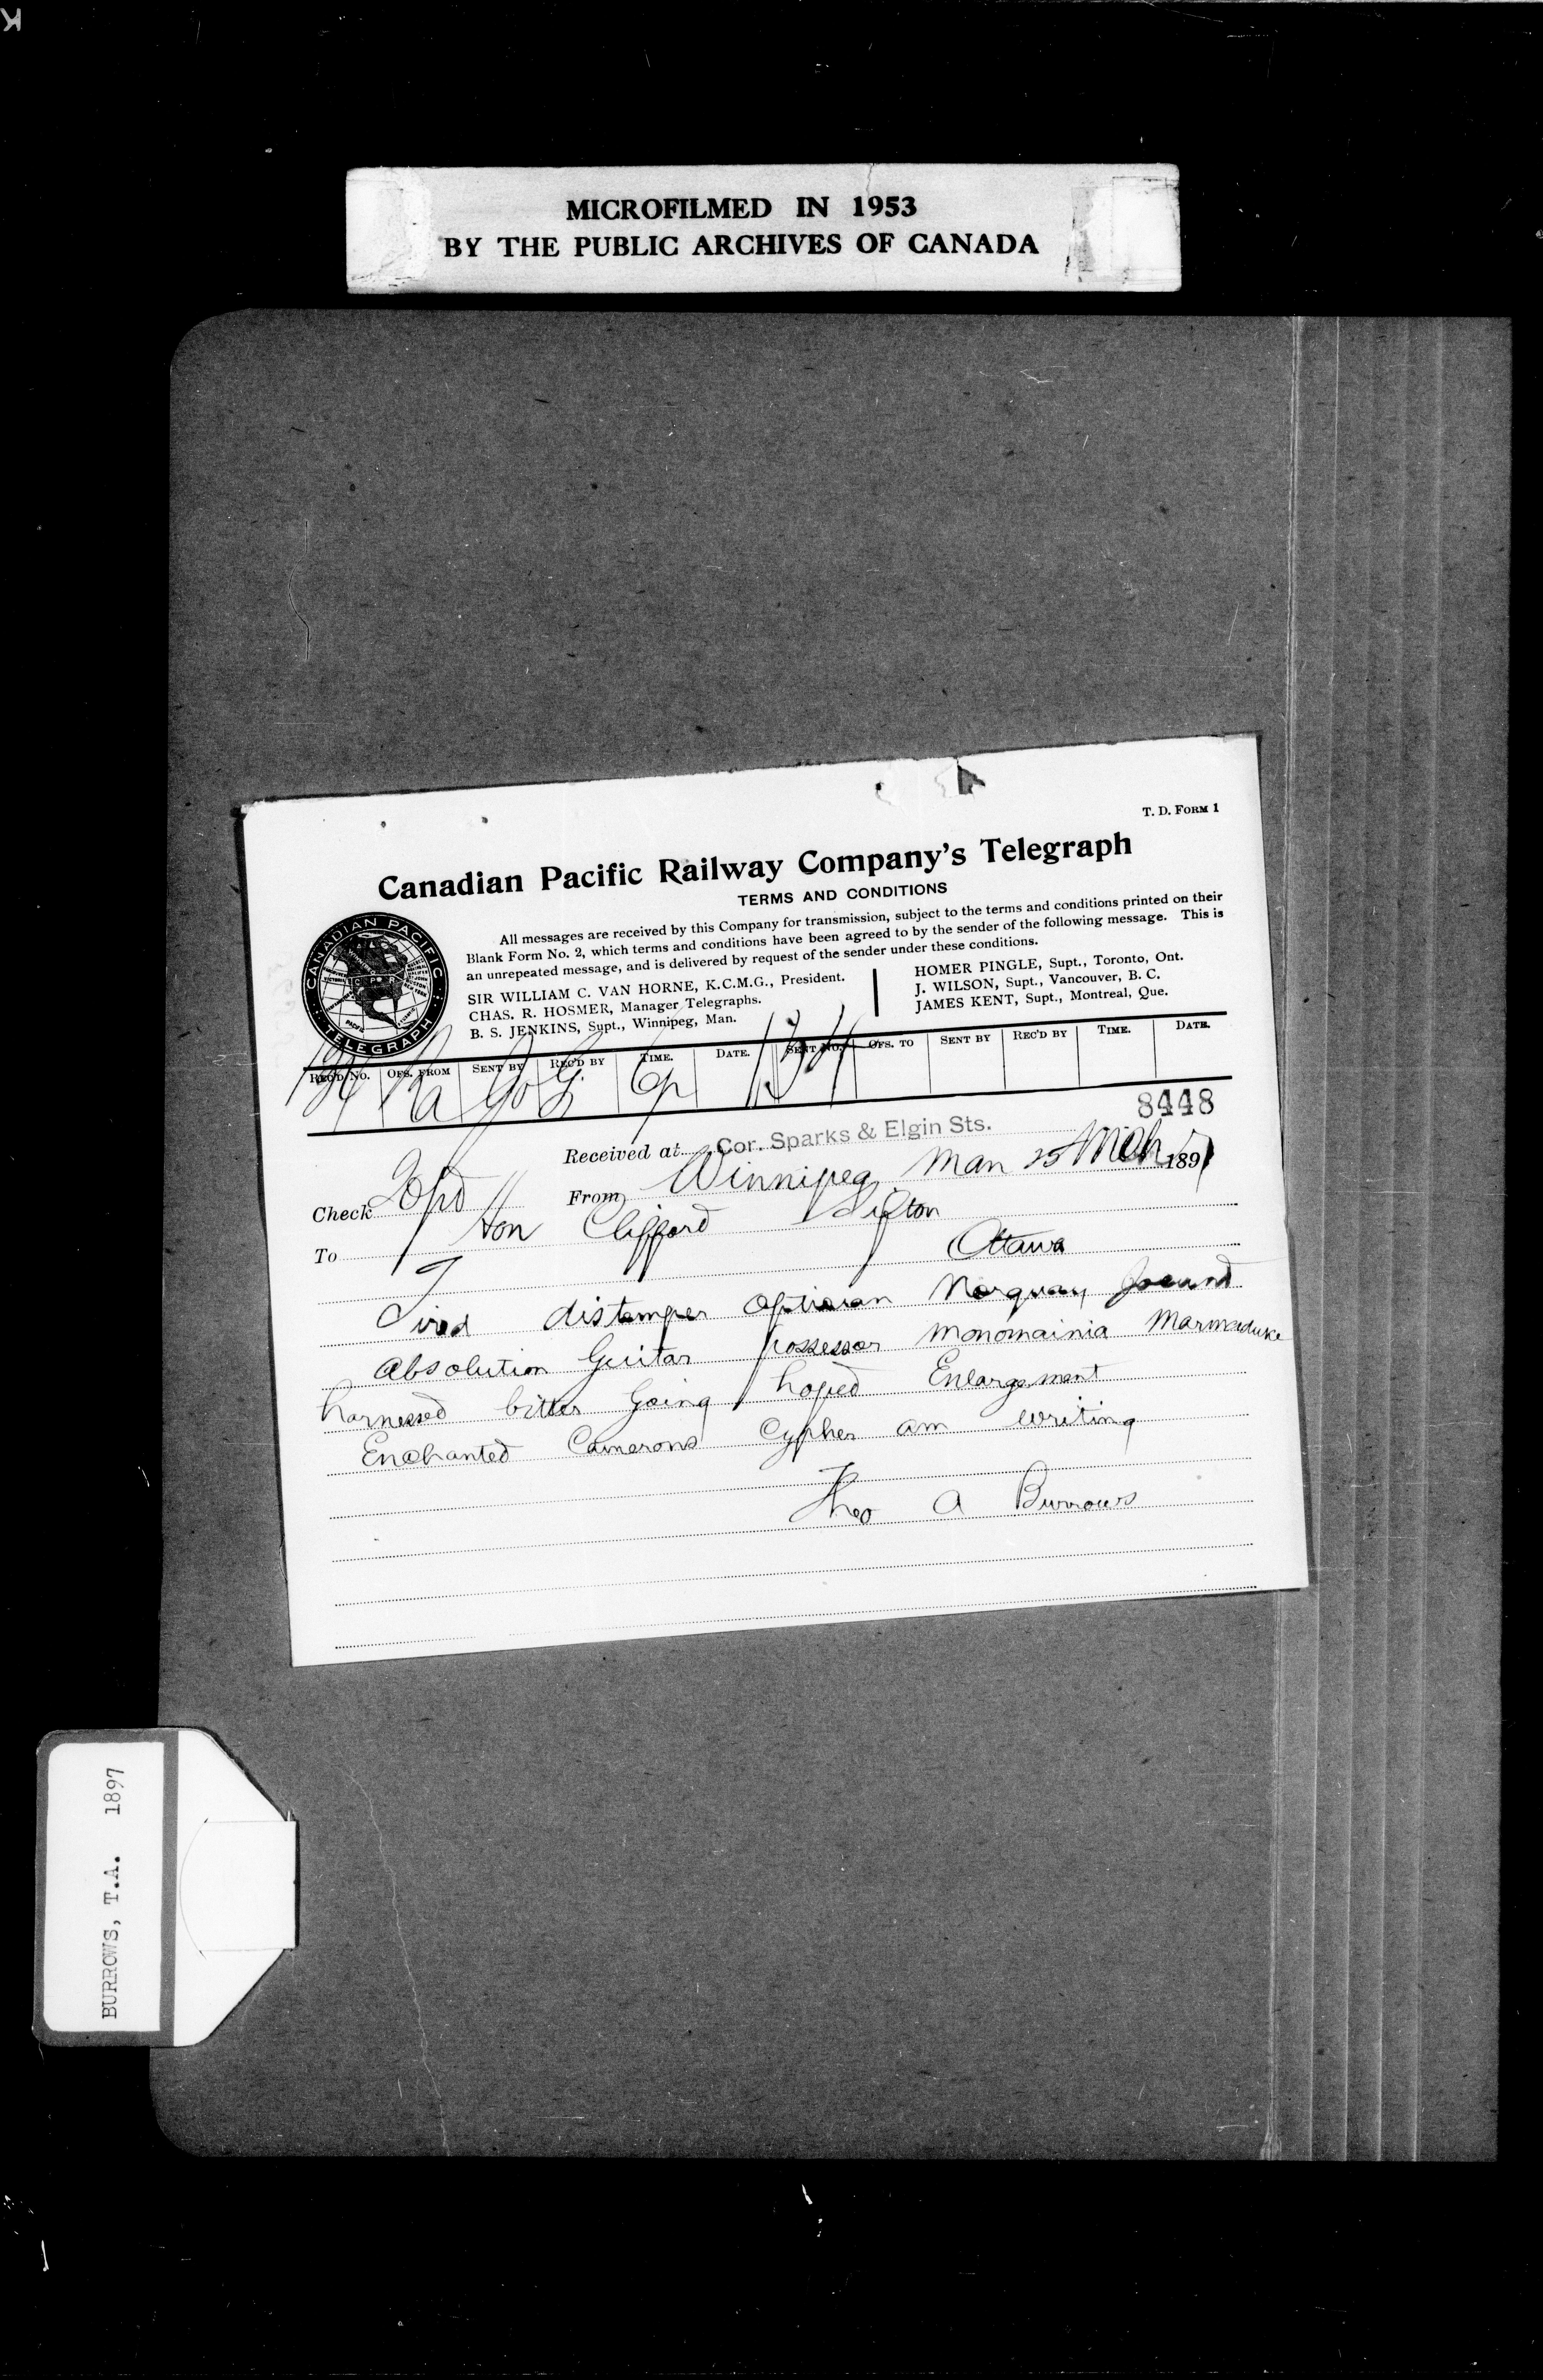 MICROFILMED IN 1953
BY THE PUBLIC ARCHIVES OF CANADA
T. D. FORM 1
Canadian Pacific Railway Company's Telegraph
TERMS AND CONDITIONS
All messages are received by this Company for transmission, subject to the terms and conditions printed on their
Blank Form No. 2, which terms and conditions have been agreed to by the sender of the following message. This is
an unrepeated message, and is delivered by request of the sender under these conditions.
SIR WILLIAM C. VAN HORNE, K.C.M.G., President.
CHAS. R. HOSMER, Manager Telegraphs.
B. S. JENKINS, Supt., Winnipeg, Man.
HOMER PINGLE, Supt., Toronto, Ont.
J. WILSON, Supt., Vancouver, B. C.
JAMES KENT, Supt., Montreal, Que.
CANADIAN PACIFIC
TELEGRAPH
REC'D NO. OFS. FROM SENT BY REC'D BY TIME. DATE. SENT NO. OFS. TO SENT BY REC'D BY TIME. DATE.
8448
Received at Cor. Sparks & Elgin Sts.
From Winnipeg Man 25 Mch 1897
Check
To Hon Clifford Sifton
Ottawa
distemper Norquay
Absolution Guitar possessor Monomainia Marmaduke
harnessed bitter going hoped Enlargement
Enchanted Camerons Cypher am writing
Theo A Burrows
BURROWS, T.A. 1897